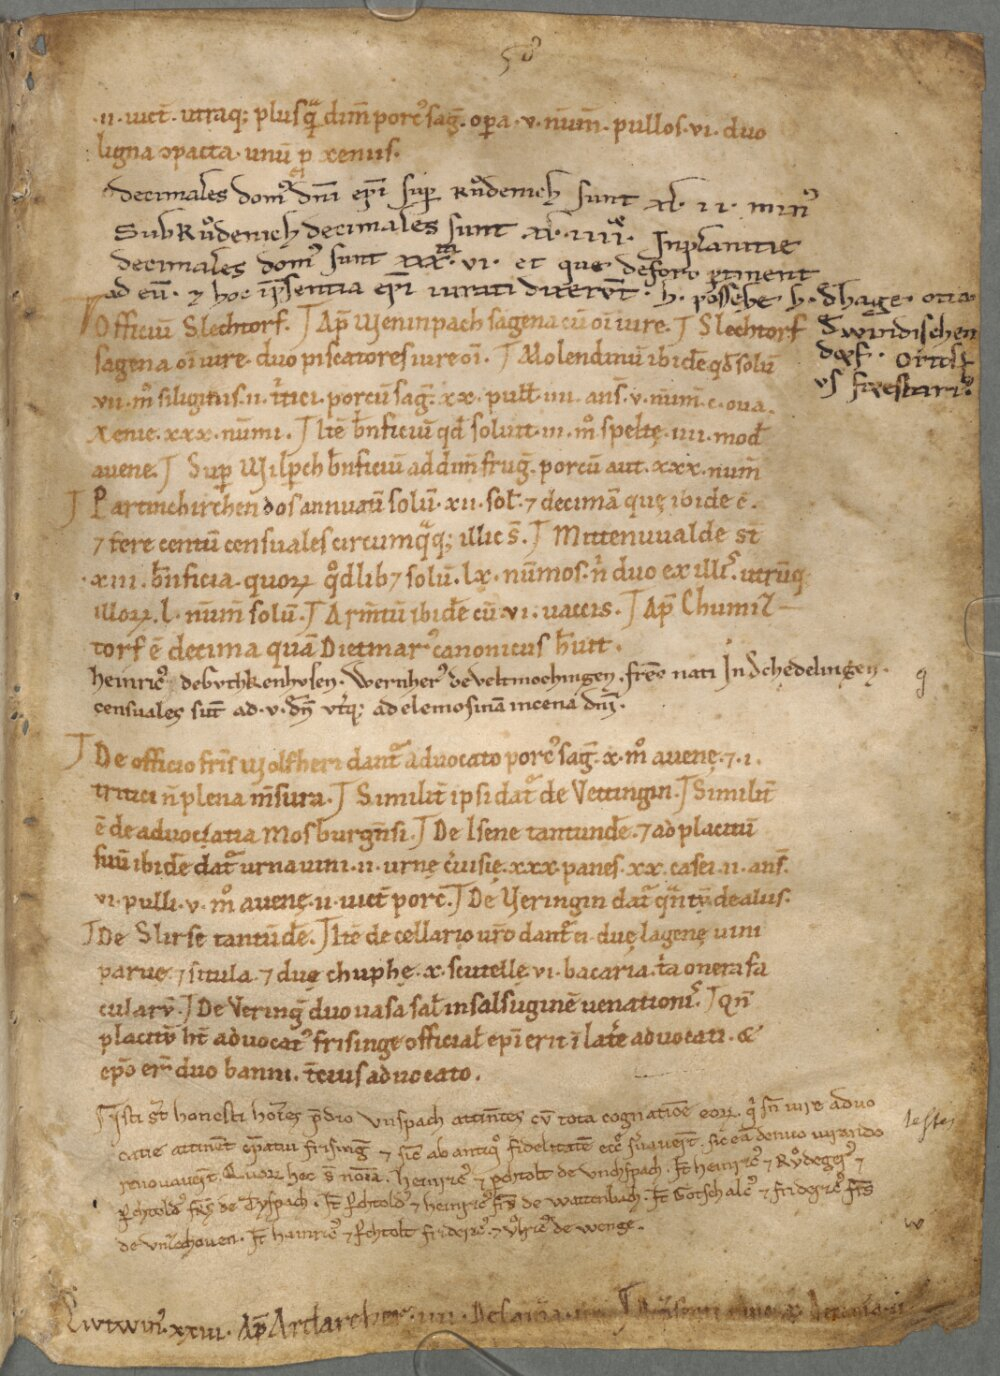 ·ii· uict̄· utraq; plusq̄ dim̄ porc᷒ saḡ· oꝑa ·v· nūm̄· pullos ·vi· duo
ligna ↄpacta· unū ꝑ xenus·
decimales dom᷒ dn̄i ep̄i suꝑ Růdenich sunt xl· ii· min᷒
Sub Růdenich decimales sunt xl· iiii᷒· Inplanitie
decimales dom᷒ sunt ·vi· et que deforo ꝑtinent
ad eū· ⁊ hoc ip̄sentia ep̄i iurati dixerūt· h·
Officiū Slechtorf· Ap̄ Weninpach sagena cū oı̄ iure· Slechtorf
sagena oı̄ iure· duo piscatores iure oı̄· Molendinū ibidē qd̄ solū
vii· m̊ siliginis· ii· t̄tici· porcū saḡ· xx· pull̄· iiii· ans̄· v· nūm̄· c· oua·
Xenie· xxx· nūmi· Itē b̄nficiū qd̄ soluit· iii· m̊ speltę· iiii· mod̄
auene· Suꝑ Wilpͨch b̄nficiū ad dim̄ fruḡ· porcū aut· xxx· num̄
Partinchirchen̄ dos annuatī solū· xii· sol̄· ⁊ decimā quę ibide ē·
⁊ fere centū censuales circumq̄q; illic s̄· Mittenuualde st̄
·xiii· b̄nficia· quoꝝ qd̊lib⁊ solū· lx· nūmos· n̄ duo ex ill᷒· utrūq;
illoꝝ· l· nūm̄ solū· Arm̄tū ibidē cū ·vi· uaccis· Ap̄ Chumil-
torf ē decima quā Dietmar᷒ canonicus h̄uit·
heinric᷒ de buthkenhusen· Wernher᷒ de veltmochingen· fr̄es nati In Schedelingen·
censuales sūt ad ·v· dn̄ ut̄q; ad elemosinā in cena dn̄i·
De officio fr̄is Wolfheri dant᷒ aduocato porc᷒ saḡ· x· m̊ auenę· ⁊ ·i·
tritici n̄ plena m̄sura· Similit̄ ipsi dat᷒ de Vettingin· Similit̄
ē de aduocatia Mosburgn̄si· De Isene tantundē· ⁊ ad placitū
suū ibidē dat᷒ urna uini· ii· urnę c̄uisię· xxx· panes· xx· casei· ii· ans̄·
vi· pulli· v· m̊ auenę· ii· uict̄ porc̄· De Yeringin dat᷒ q̄ntū de alus·
De Slirse tantūdē· Itē de cellario ur̄o dant᷒ ei· duę lagenę uini
paruę· ⁊ situla· ⁊ duę chuphę· x· scutellę· vi· bacaria· t̄a onera fa
cularū· De Verinḡ duo uasa sal̄ in salsuginē uenationı᷒· Qn̄
placitū h̄t aduocat᷒ frisinge official̄ ep̄i erit ı̄ lat̄e aduocati· &
ep̄o er̄ duo banni· t̄cius aduocato·
Isti s̄t honesti ho͞ıes p̄dio Vnspach attin̄tes cū tota cognatiōe eoꝝ· q̄ sn̄ iure aduo
catie attinēt ep̄atui frisinḡ ⁊ sic̄ ab antiq̊ fidelitatē suauert̄· sic eā denuo iurando
renouauert̄· Quoꝝ hec s̄ noı̄a· heinric᷒ ⁊ pͨchtolt de Vnchspach· heinric᷒ ⁊ Růdeger᷒ ⁊
pͨchtold᷒ fr̄s de Tyspach· pͨchtold᷒ ⁊ heinric᷒ fr̄s de Wattenbach· Gotschalc᷒ ⁊ frideric᷒ fr̄s
hainric᷒ ⁊ pͨchtolt frideric᷒ ⁊ Vlric᷒ de wenge·
Liutwin᷒· xxiii· Ap̄ Ardarcher·
possehe h· d̄ hage· otto
d̄ windischen
dorf· ortolf
testes